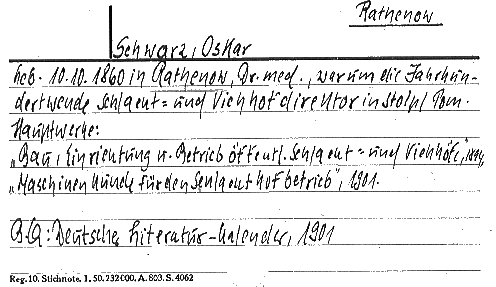 Rathenow
Schwarz, Oskar
Geb. 10.10.1860 in Rathenow, Dr. med., war um die Jahrhun-
dertwende Schlacht= und Viehhofdirektor in Stolp/Pom.
Hauptwerke:
„Bau, Einrichtung u. Betrieb öffentl. Schlacht= und Viehhöfe",
„Maschinenkunde für den Schlachthofbetrieb", 1901.
B.Q: Deutscher Literatur-Kalender, 1901
Reg. 10. Stichnote. 1. 50. 232000. A. 803. S. 4062